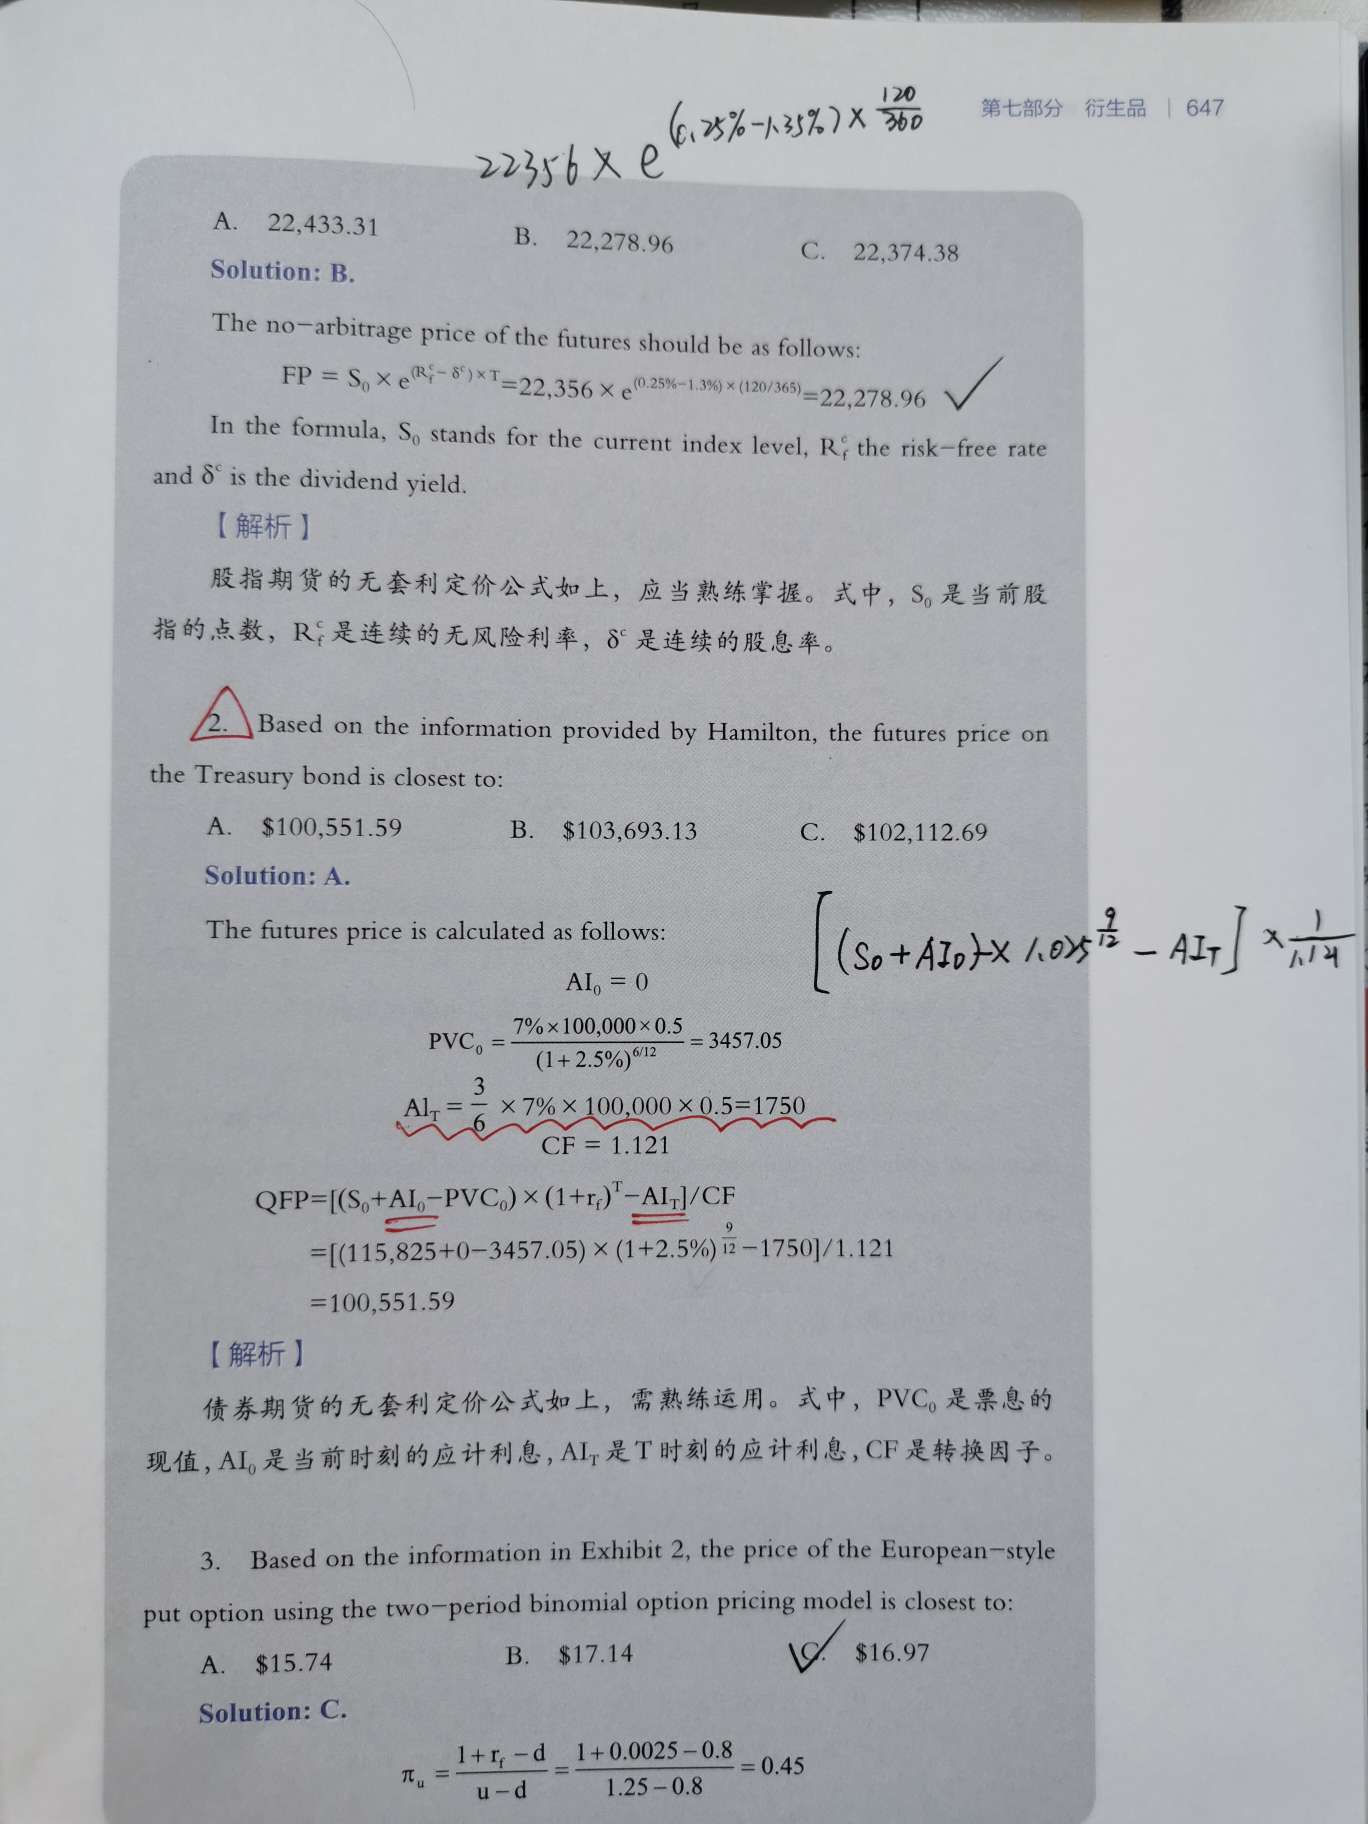 第七部分 衍生品 | 647
22356 × e^((0.25%-1.35%) × 120/360)
A. 22,433.31 B. 22,278.96 C. 22,374.38
Solution: B.
The no-arbitrage price of the futures should be as follows:
FP = S₀ × e^((R_f^c − δ^c)×T) =22,356 × e^((0.25%−1.3%)×(120/365)) =22,278.96
In the formula, S₀ stands for the current index level, R_f^c the risk-free rate
and δ^c is the dividend yield.
【解析】
股指期货的无套利定价公式如上，应当熟练掌握。式中，S₀ 是当前股
指的点数，R_f^c 是连续的无风险利率，δ^c 是连续的股息率。
2. Based on the information provided by Hamilton, the futures price on
the Treasury bond is closest to:
A. $100,551.59 B. $103,693.13 C. $102,112.69
Solution: A.
The futures price is calculated as follows:
[(S₀+AI₀) × 1.025^(9/12) − AI_T] ×
AI₀ = 0
PVC₀ = (7%×100,000×0.5)/(1+2.5%)^(6/12) = 3457.05
AI_T = 3/6 × 7% × 100,000 × 0.5=1750
CF = 1.121
QFP=[(S₀+AI₀−PVC₀) × (1+r_f)^T −AI_T]/CF
=[(115,825+0−3457.05) × (1+2.5%)^(9/12) −1750]/1.121
=100,551.59
【解析】
债券期货的无套利定价公式如上，需熟练运用。式中，PVC₀ 是票息的
现值，AI₀ 是当前时刻的应计利息，AI_T 是 T 时刻的应计利息，CF 是转换因子。
3. Based on the information in Exhibit 2, the price of the European-style
put option using the two-period binomial option pricing model is closest to:
A. $15.74 B. $17.14 C. $16.97
Solution: C.
π_u = (1+r_f −d)/(u−d) = (1+0.0025−0.8)/(1.25−0.8) = 0.45